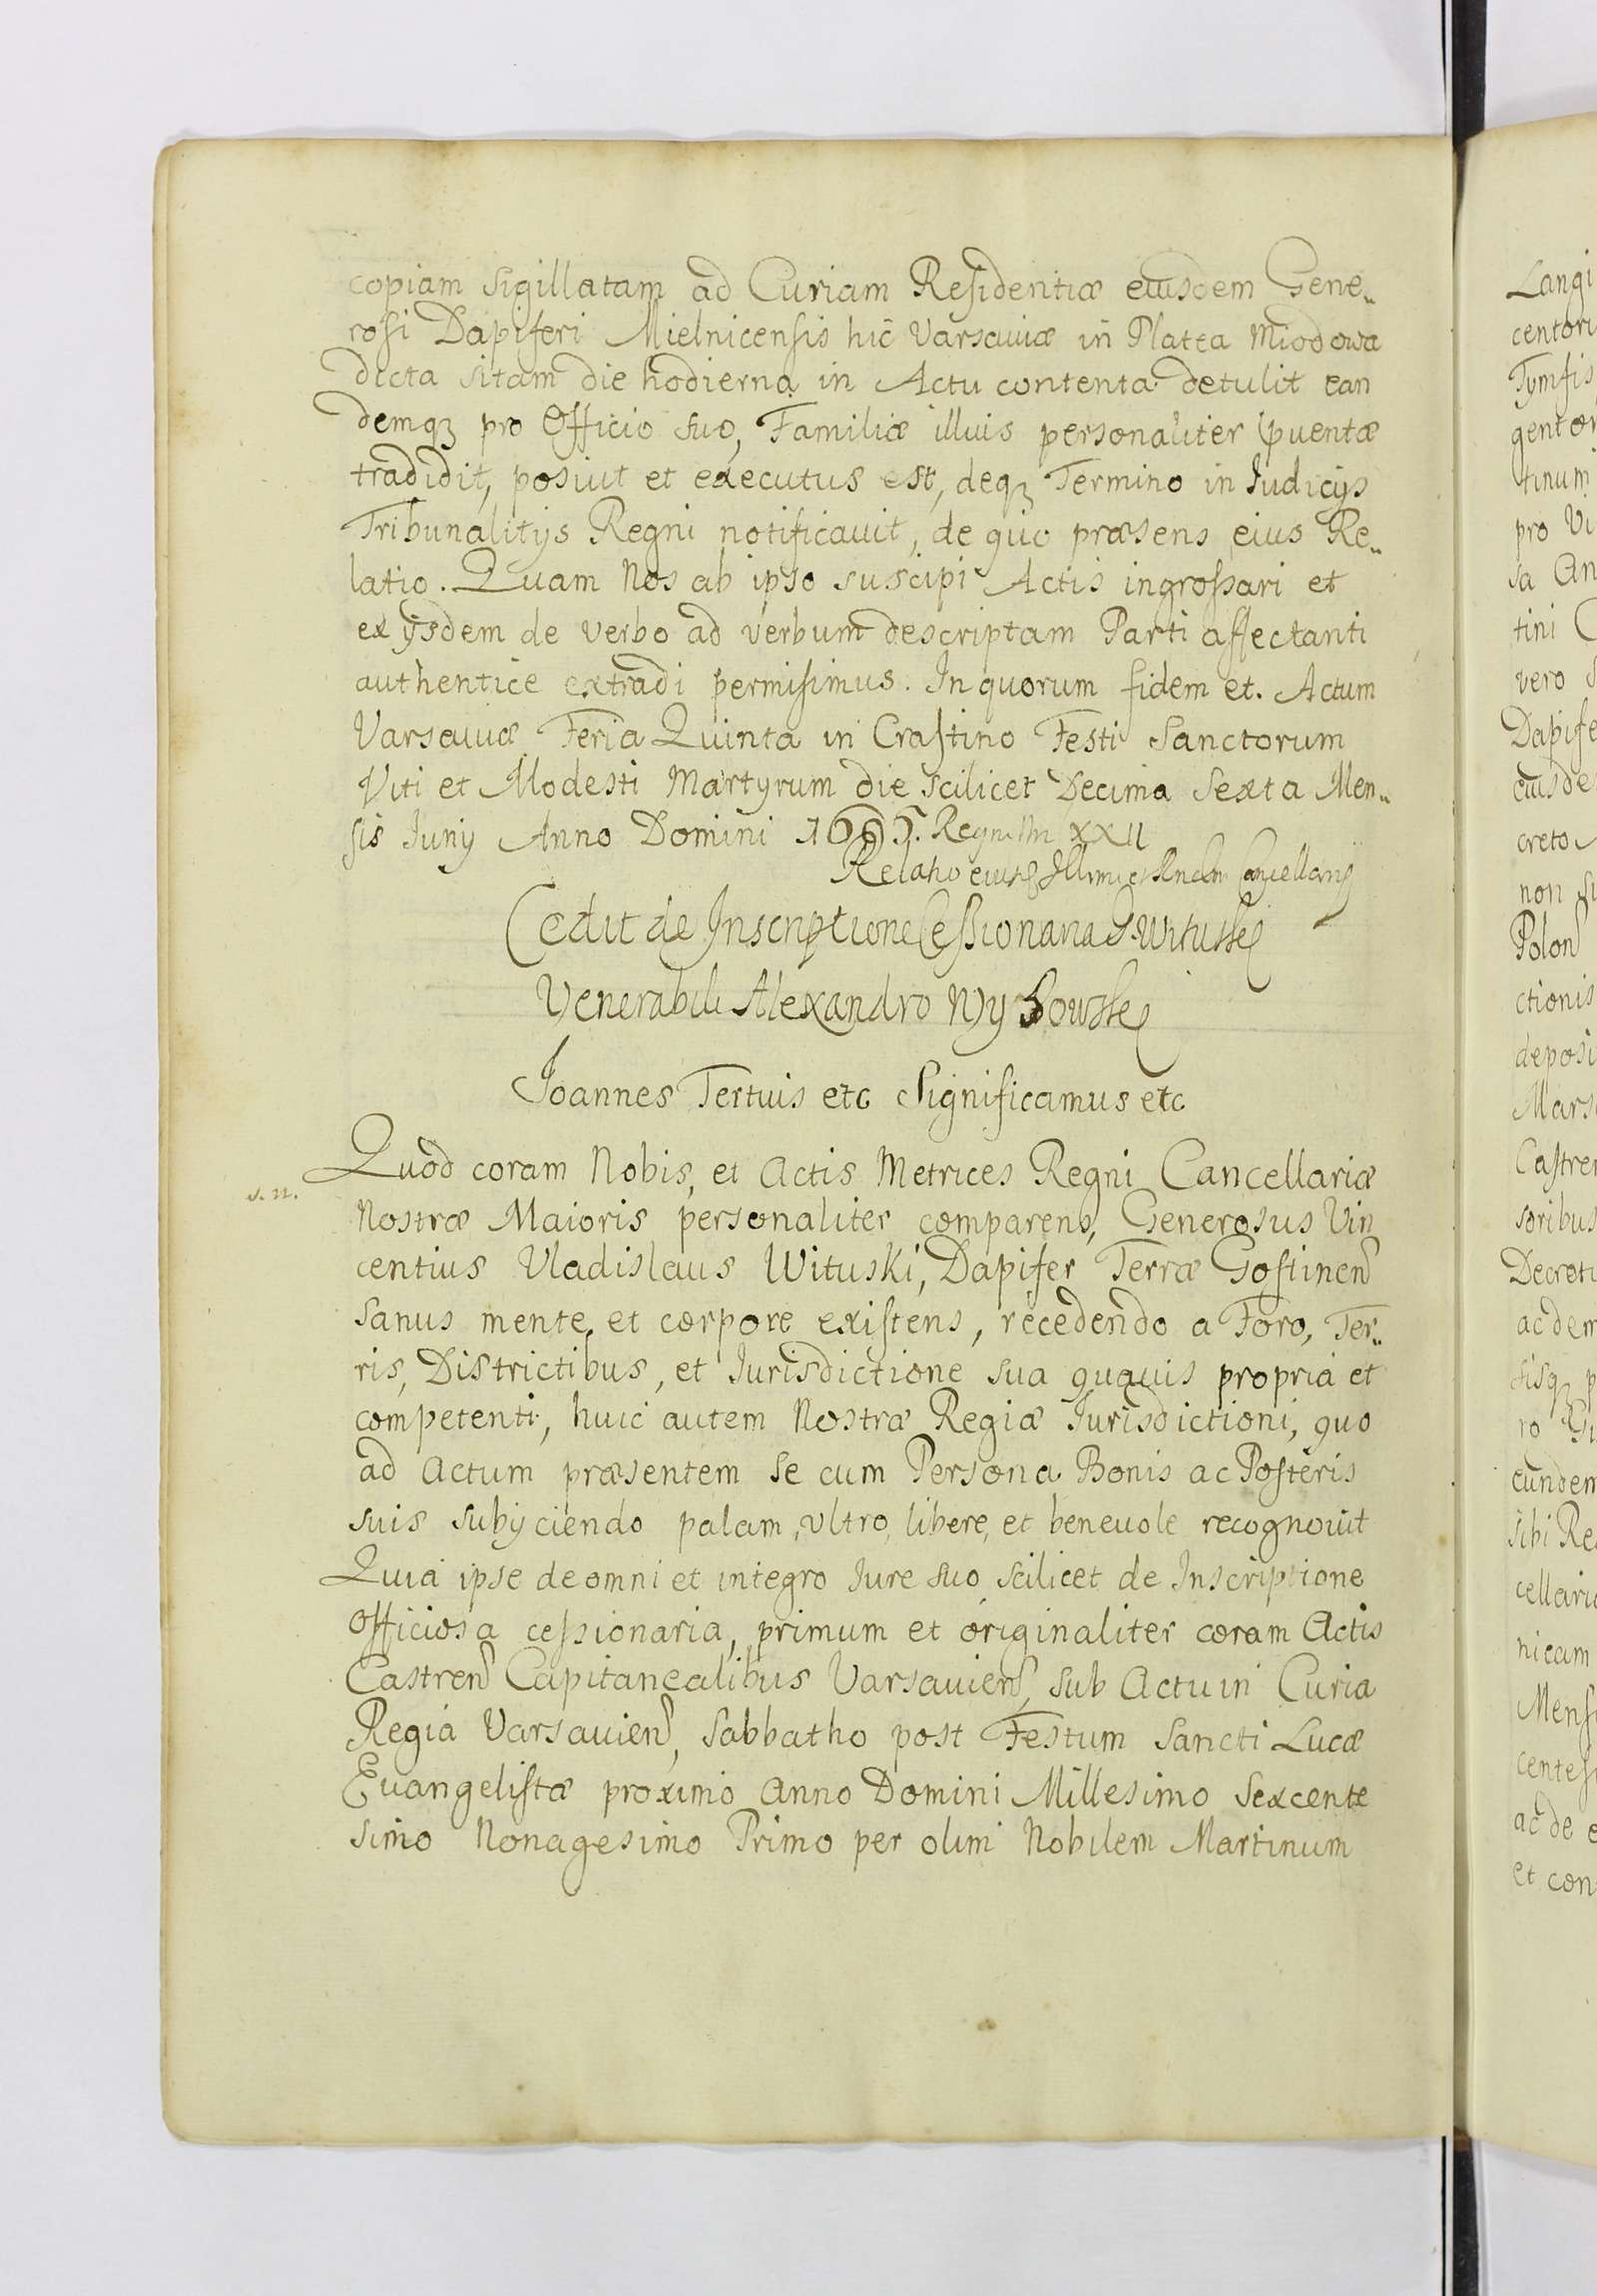 copiam sigillatam ad Curiam Residentiæ eiusdem Gene„
rosi Dapiferi Mielnicensis hic Varsaviæ in Platea Miodowa
dicta sitam die hodierna in Actu contenta detulit ean
demqꝫ pro Officio suo, Familiæ illius personaliter
tradidit, posiuit et executus est, deqꝫ Termino in Iudicijs
Tribunalitijs Regni notificauit, de quo præsens eius Re„
latio. Quam Nos ab ipso suscipi Actis ingrossari et
ex ijsdem de verbo ad verbum descriptam Parti affectanti
authentice extradi permisimus. In quorum fidem et. Actum
Varsauiæ Feria Quinta in Crastino Festi Sanctorum
Viti et Modesti Martyrum die scilicet Decima Sexta Men„
sis Iunij Anno Domini 1695. Regni Nri XXII
Relatio eiusd Cancellarij
Cedit de Inscriptione Cessionaria G. Wituski
Venerabili Alexandro Wyßowski
Joannes Tertius etc Significamus etc
Quod coram Nobis, et Actis Metrices Regni Cancellariæ
s. n.
Nostræ Maioris personaliter comparens, Generosus Vin
centius Vladislaus Wituski, Dapifer Terræ Gostinen
sanus mente, et corpore existens, recedendo a Foro, Ter„
ris, Districtibus, et Iurisdictione sua quauis propria et
competenti, huic autem Nostræ Regiæ Iurisdictioni, quo
ad Actum præsentem se cum Persona Bonis ac Posteris
suis subijciendo palam, ultro, libere, et beneuole recognouit
Quia ipse de omni et integro Iure suo scilicet de Inscriptione
Officiosa cessionaria, primum et originaliter coram Actis
Castren Capitanealibus Varsauien, sub Actu in Curia
Regia Varsauien, Sabbatho post Festum Sancti Lucæ
Euangelistæ proximo Anno Domini Millesimo Sexcente
simo Nonagesimo Primo per olim Nobilem Martinum
Langi
centoru
Tymfis
gentor
tinum
pro Vi
sa An
tini C
vero
Dapife
eiusde
creto
non su
Polon
ctionis
deposi
Mars
Castren
soribus
Decreti
ac dem
sisqꝫ p
ro
eundem
sibi Re
cellari
nicam
Mensi
centesi
ac de e
et con